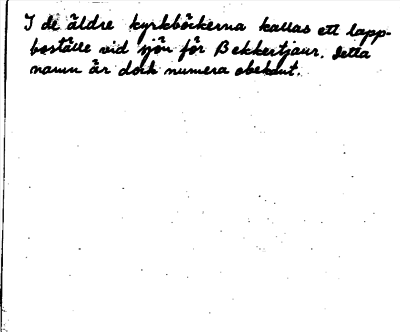 I de äldre kyrkböckerna kallas ett lapp-
boställe vid sjön för Bekkertjaur. Detta
namn är dock numera obekant.